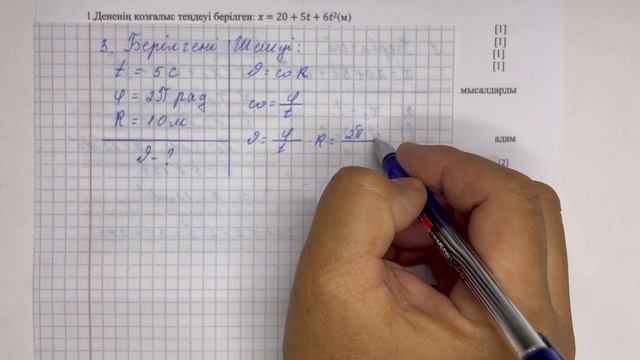 1.Дененің қозғалыс теңдеуі берілген: x = 20 + 5t + 6t²(м)
[1]
[1]
[1]
[1]
мысалдарды
адам
[2]
3. Берілгені Шешуі:
t = 5 с
φ = 2π рад
R = 10 м
ϑ - ?
ϑ = ω R
ω = φ/t
ϑ = φ/t · R = 2π